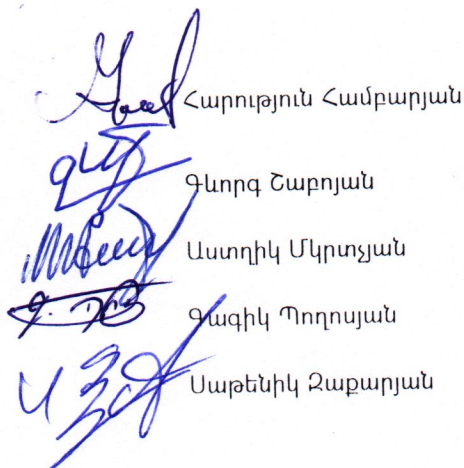 Հարություն Համբարյան
Գևորգ Շաբոյան
Աստղիկ Մկրտչյան
Գագիկ Պողոսյան
Սաթենիկ Զաքարյան